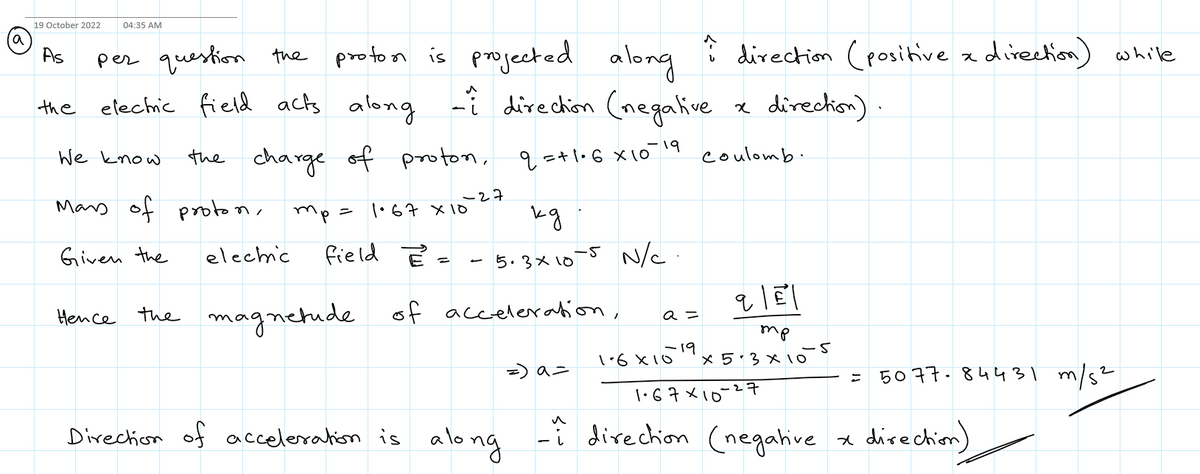 19 October 2022 04:35 AM
(a) As per question the proton is projected along î direction (positive x direction) while
the electric field acts along -î direction (negative x direction).
We know the charge of proton, q = +1.6 × 10⁻¹⁹ coulomb.
Mass of proton, mp = 1.67 × 10⁻²⁷ kg.
Given the electric field E⃗ = - 5.3 × 10⁻⁵ N/C.
Hence the magnetude of acceleration, a = q|E⃗| / mp
⇒ a = 1.6 × 10⁻¹⁹ × 5.3 × 10⁻⁵ / 1.67 × 10⁻²⁷ = 5077.84431 m/s²
Direction of acceleration is along -î direction (negative x direction)